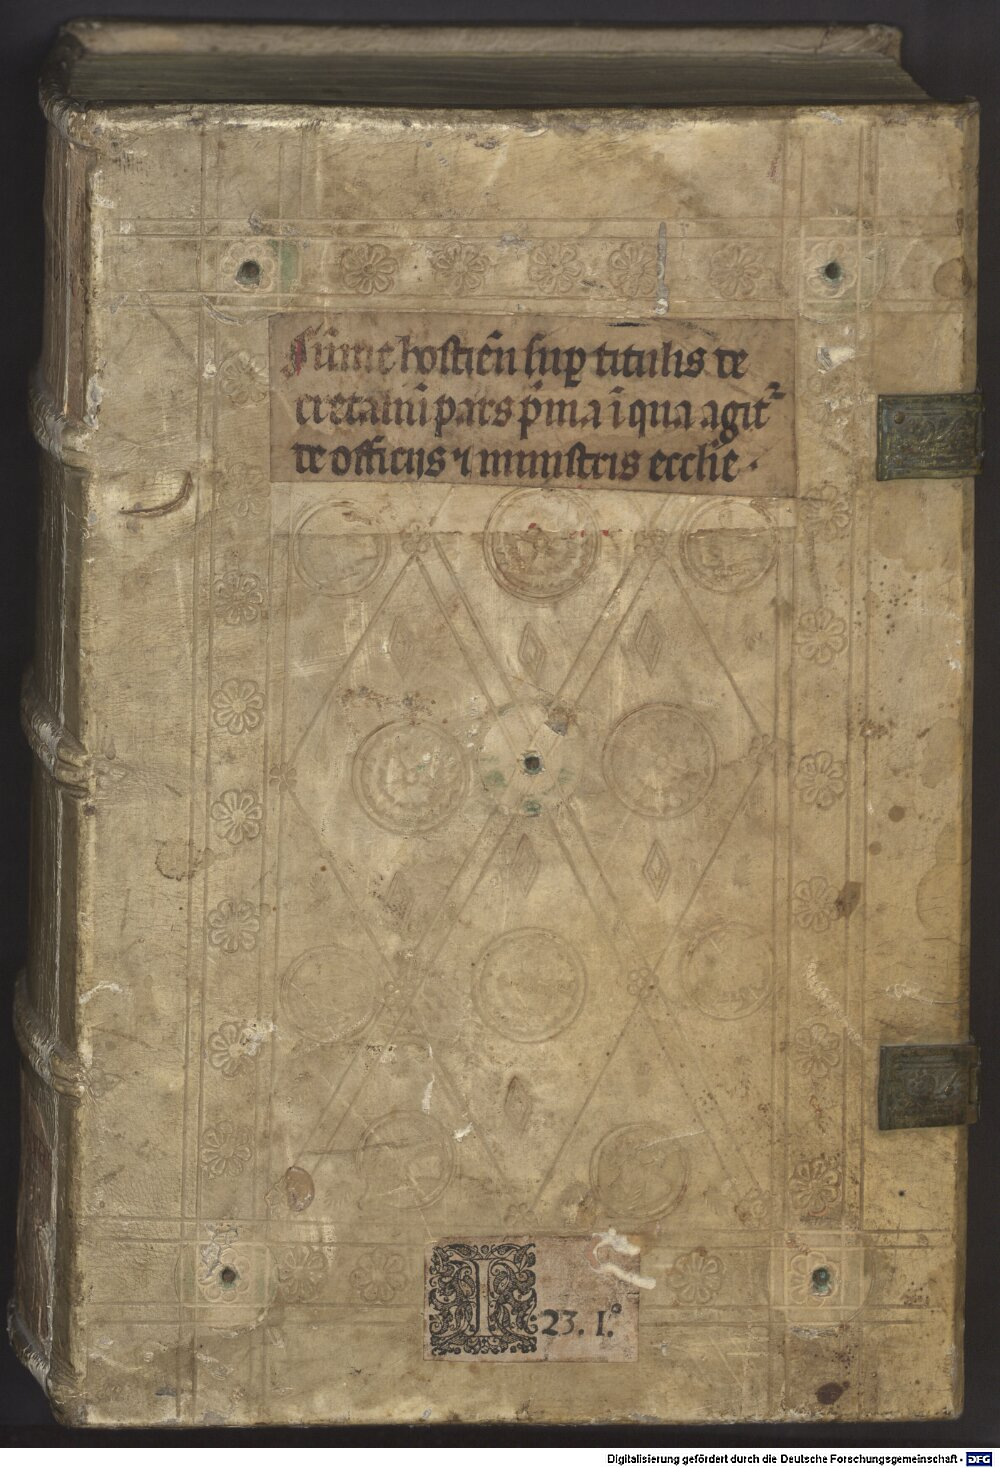 Sūme hostiēn sup titulis de
cretaliū pars p̄ma ī qua agit᷑
de officijs ⁊ ministris ecclīe ·
I 23. I.°
Digitalisierung gefördert durch die Deutsche Forschungsgemeinschaft - DFG